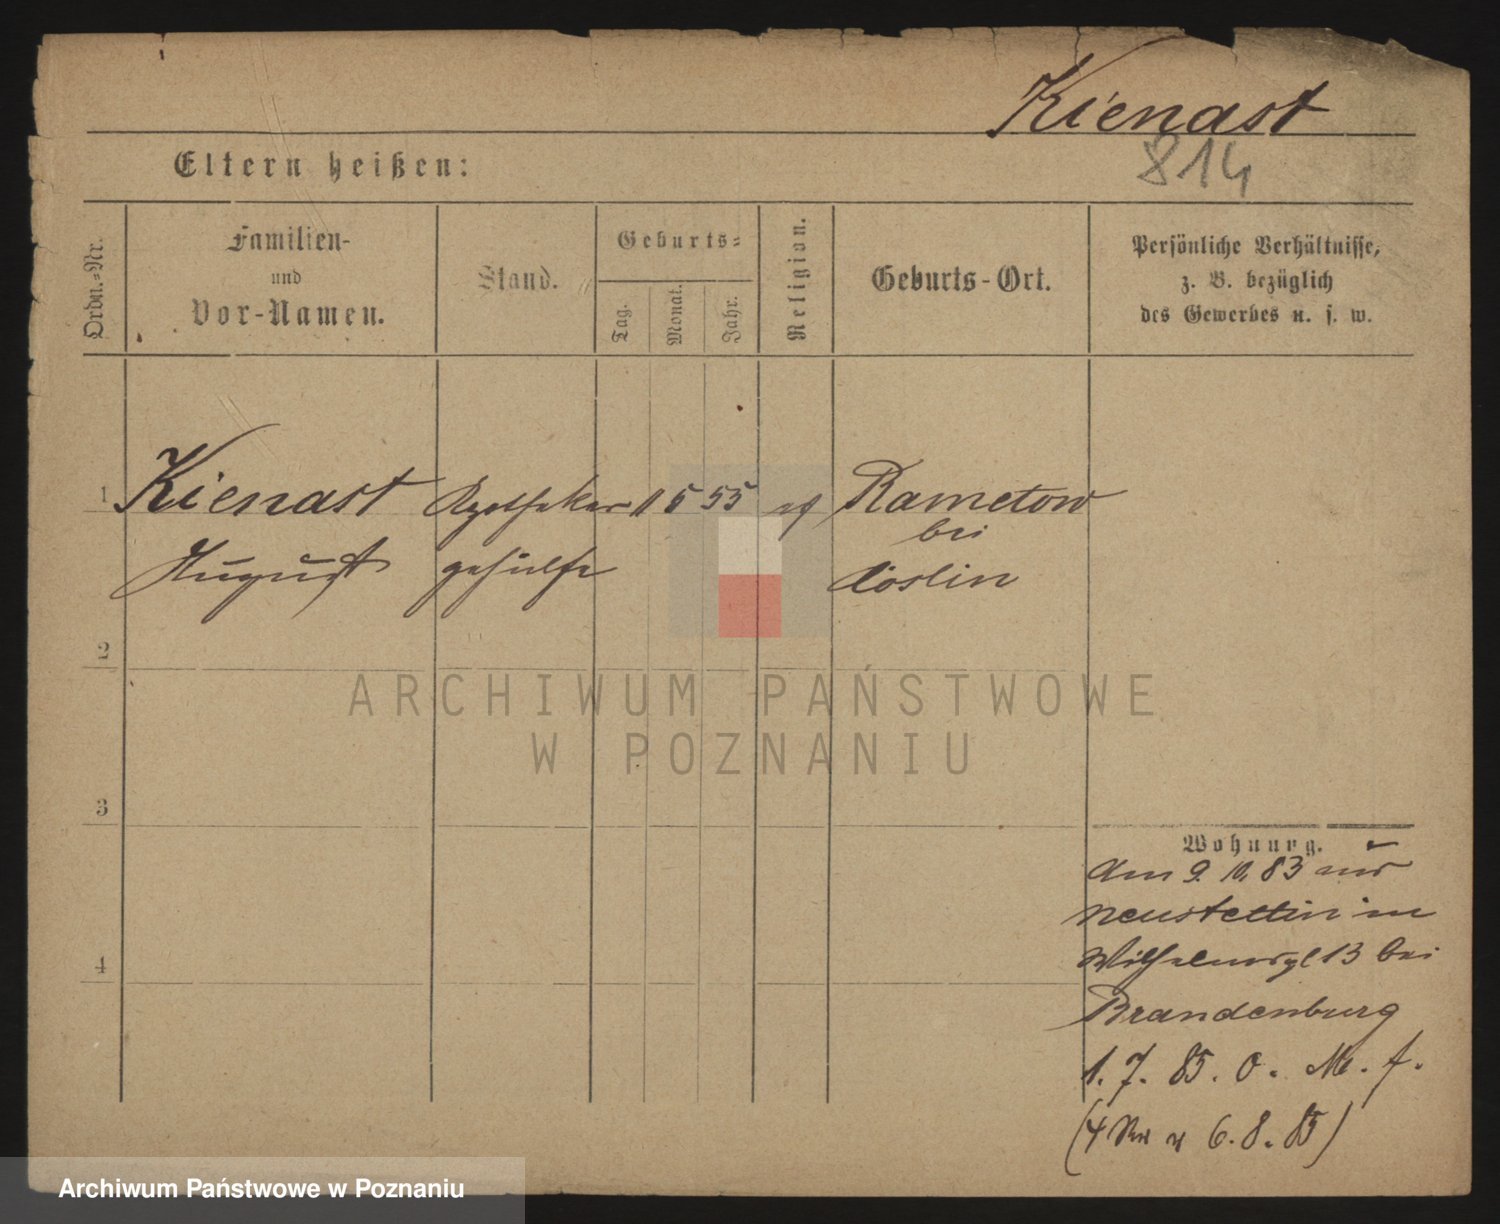 Kienast
814
Eltern heißen:
Ordn.-Nr.
Familien-
und
Vor-Namen.
Stand.
Geburts-
Tag.
Monat.
Jahr.
Religion.
Geburts-Ort.
Persönliche Verhältnisse,
z. B. bezüglich
des Gewerbes u. s. w.
1 Kienast Apotheker 1 5 55 Rametow
bei
August gehülfe Cöslin
2
3
4
Wohnung.
Am 9. 10. 83 aus
Neustettin in
13 bei
Brandenburg
1. 7. 85. O. M. f.
6. 8. 85)
ARCHIWUM PAŃSTWOWE
W POZNANIU
Archiwum Państwowe w Poznaniu